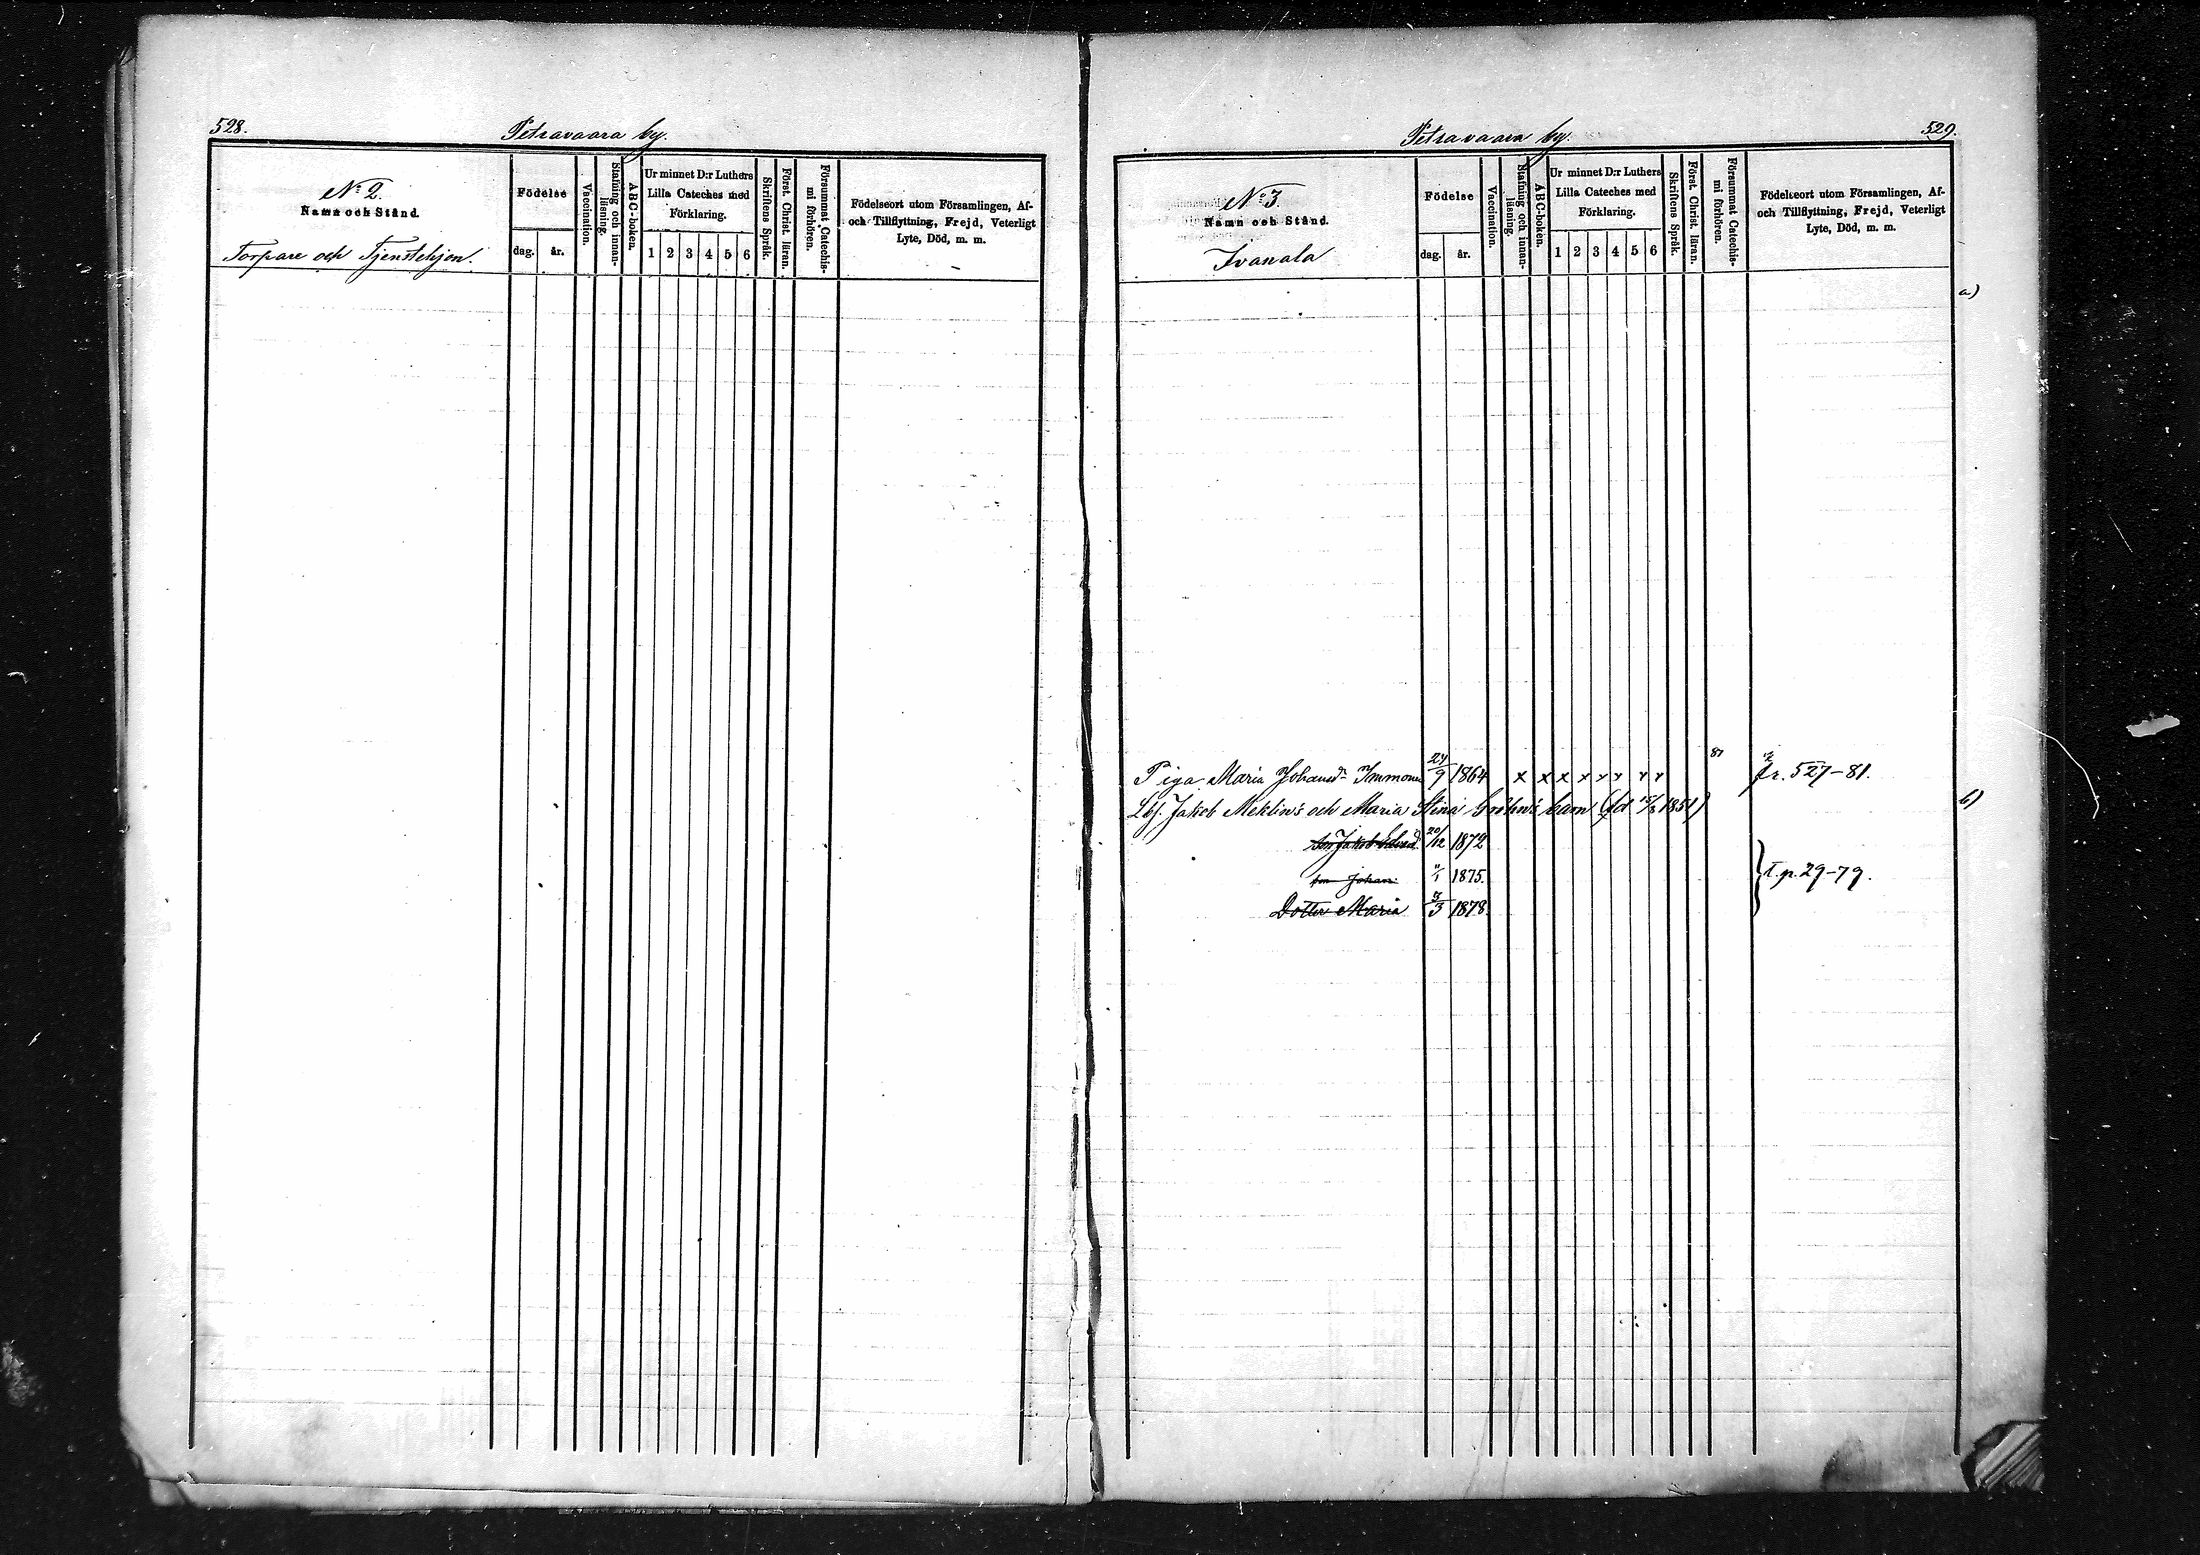 528.
Petravaara by.
N:o 2.
Namn och Stånd.
Torpare och Tjenstehjon.
Födelse
dag. år.
Vaccination.
Stafning och innan-
läsning.
ABC-boken.
Ur minnet D:r Luthers
Lilla Cateches med
Förklaring.
1 2 3 4 5 6
Skriftens Språk.
Först. Christ. läran.
Försummat Catechis-
mi förhören.
Födelseort utom Församlingen, Af-
och Tillflyttning, Frejd, Veterligt
Lyte, Död, m. m.
Petravaara by.
529.
N:o 3.
Namn och Stånd.
Ivanala
Födelse
dag. år.
Vaccination.
Stafning och innan-
läsning.
ABC-boken.
Ur minnet D:r Luthers
Lilla Cateches med
Förklaring.
1 2 3 4 5 6
Skriftens Språk.
Först. Christ. läran.
Försummat Catechis-
mi förhören.
Födelseort utom Församlingen, Af-
och Tillflyttning, Frejd, Veterligt
Lyte, Död, m. m.
a)
Piga Maria Johansdr Immonen 24/9 1864 x x x x x x x x 81 fr. 527-81.
Lbf. Jakob Meklin's och Maria Stina Gröhn's barn (fd 15/3 1851) b)
Son Jakob Edvard 20/12 1872
son Johan 1875. T.p. 29-79.
Dotter Maria 1878.